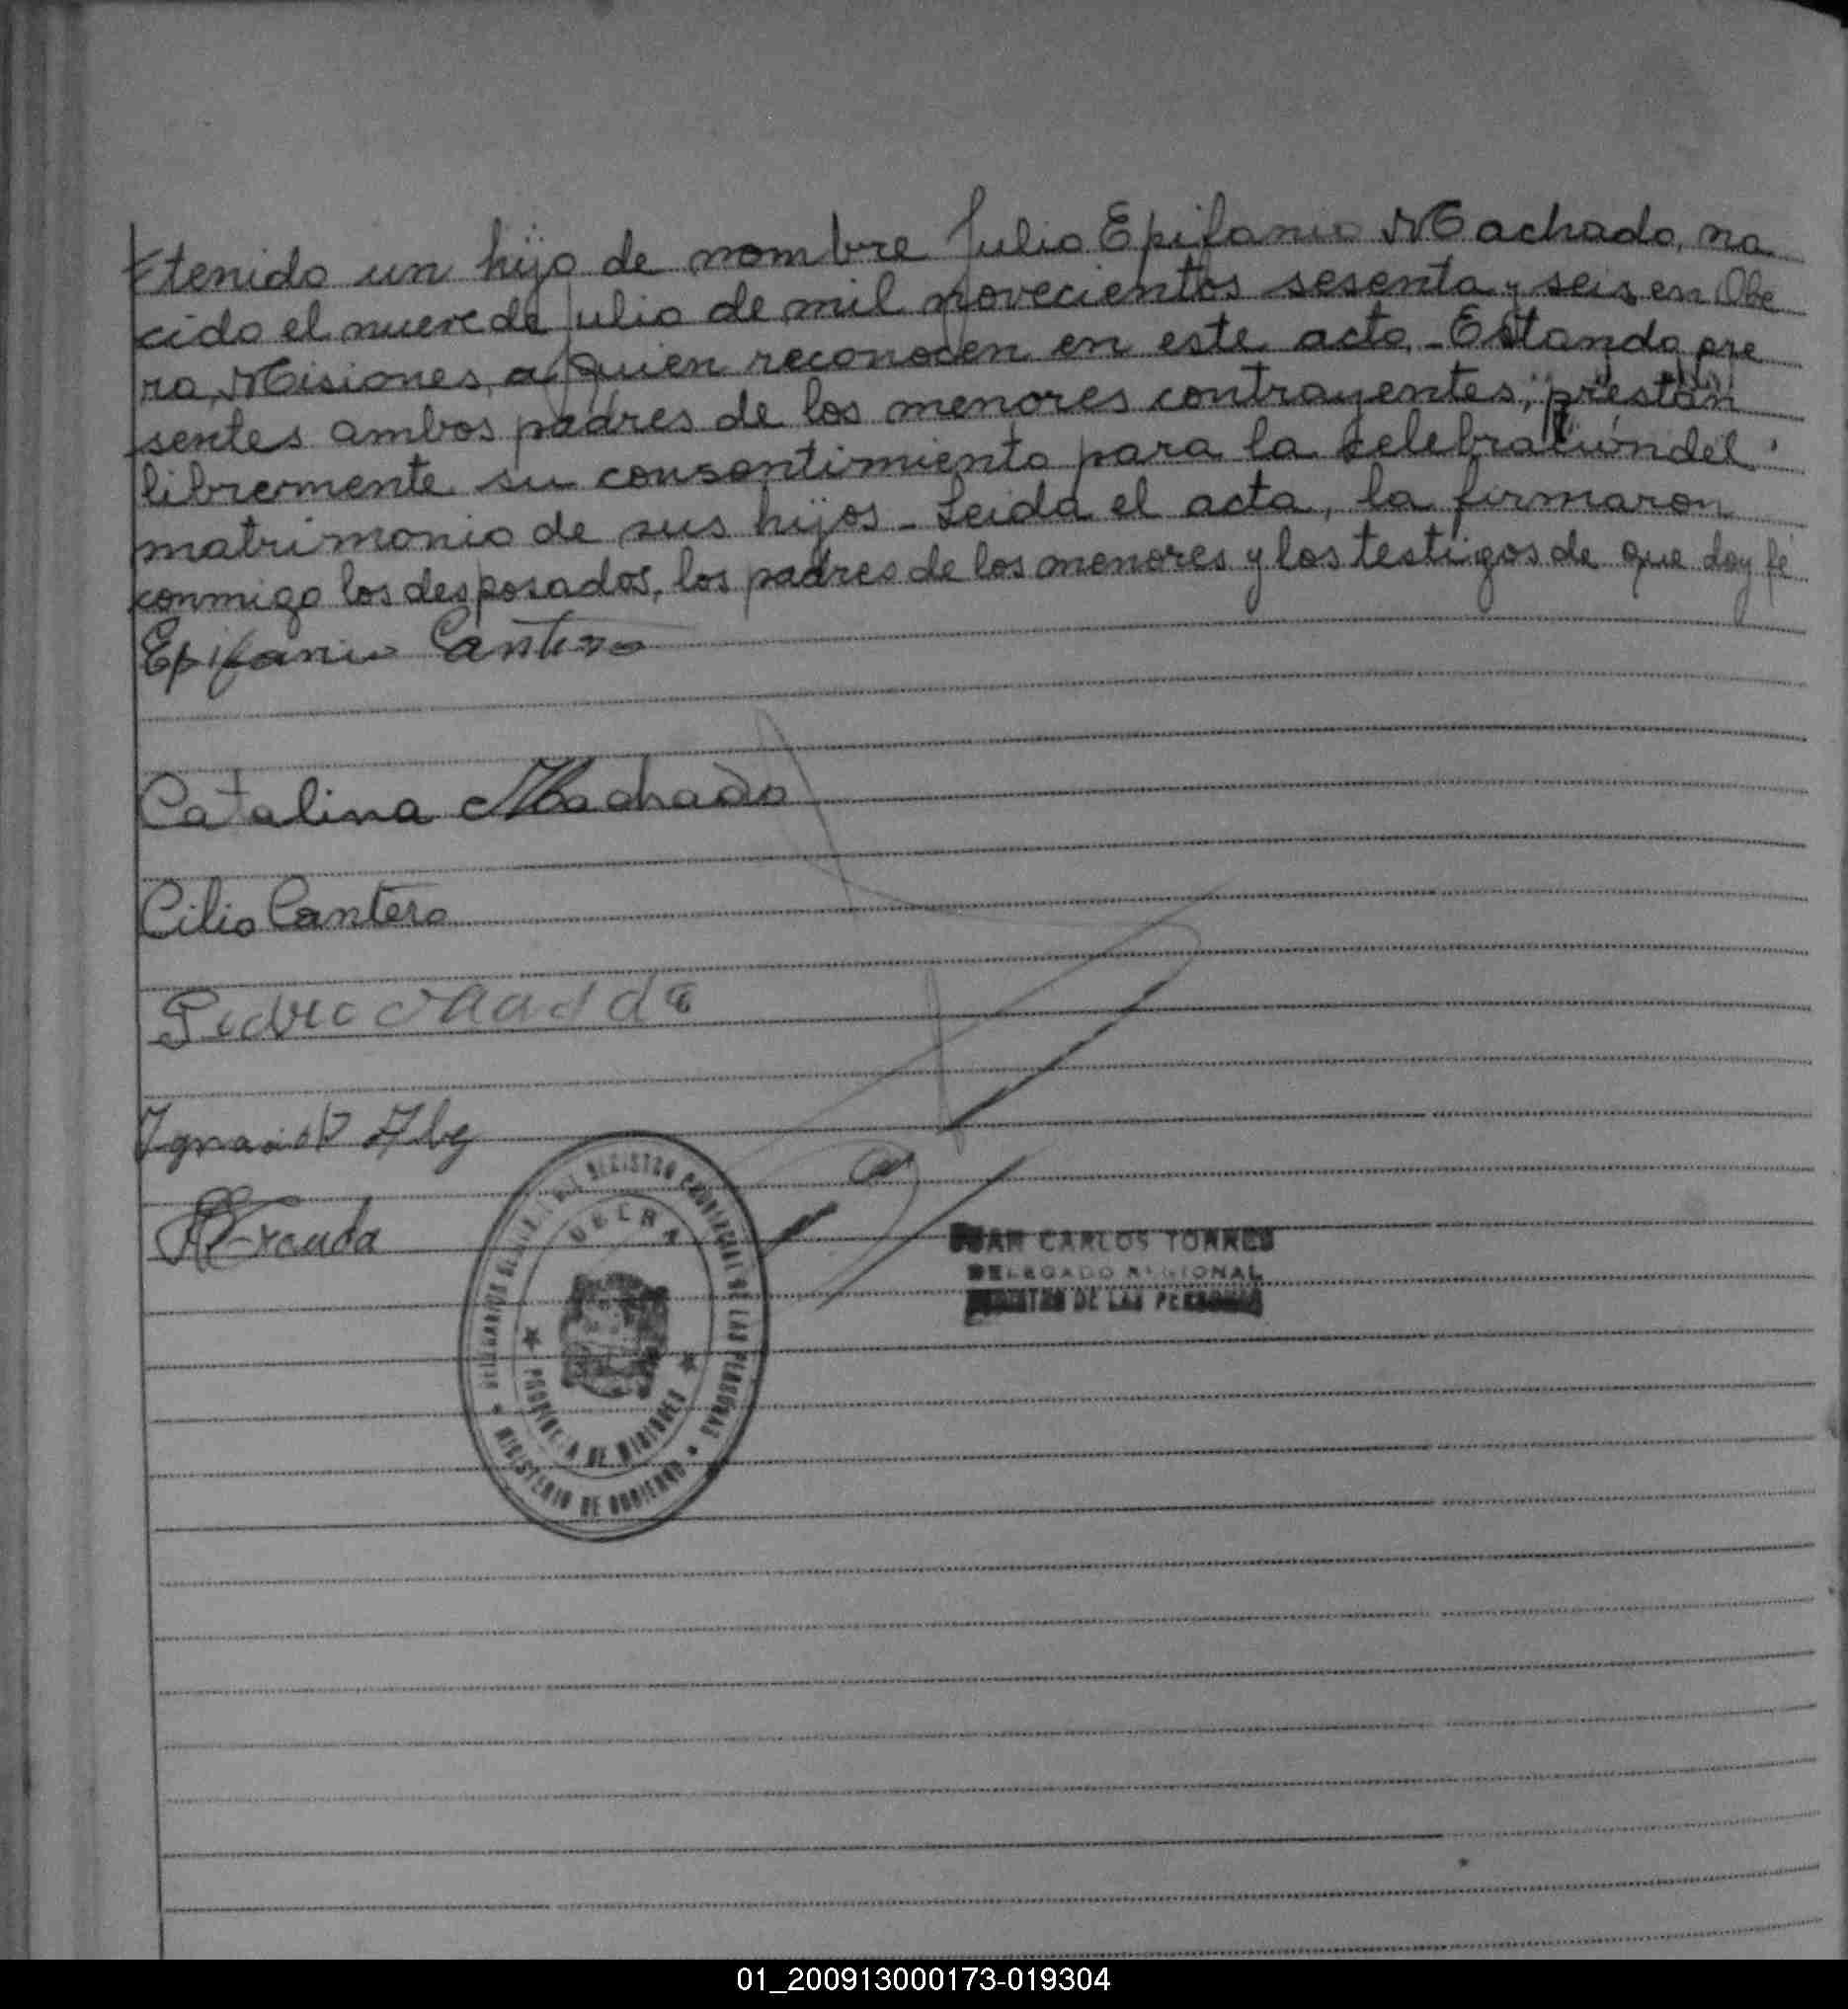 tenido un hijo de nombre Julio Epifanio Machado, na
cido el nueve de Julio de mil novecientos sesenta y seis en Obe
ra, Misiones, a quien reconocen en este acto.- Estando pre
sentes ambos padres de los menores contrayentes, prestan
libremente su consentimiento para la celebración del
matrimonio de sus hijos - Leida el acta, la firmaron
conmigo los desposados, los padres de los menores y los testigos de que doy fé
Epifanio Cantero
Catalina Machado
Cilio Cantero
Pedro
OBERA
PROVINCIA DE MISIONES
MINISTERIO DE GOBIERNO
REGISTRO PROVINCIAL DE LAS PERSONAS
JUAN CARLOS TORRES
DELEGADO REGIONAL
REGISTRO DE LAS PERSONAS
01_200913000173-019304